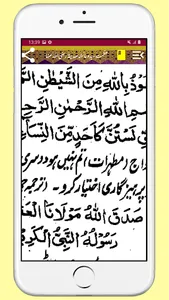 12:39
عوذُ بِاللّٰهِ مِنَ الشَّيْطٰنِ الرَّجِ
مِ اللّٰهِ الرَّحْمٰنِ الرَّحِ
لَسْتُنَّ كَاَحَدٍ مِّنَ النِّسَآ
اج (مطهرات) تم نہیں ہو دوسری
پرہیزگاری اختیار کرو۔ (ترجمہ
صَدَقَ اللّٰهُ مَوْلَانَا الْعَ
رَسُوْلُهُ النَّبِيُّ الْكَرِ